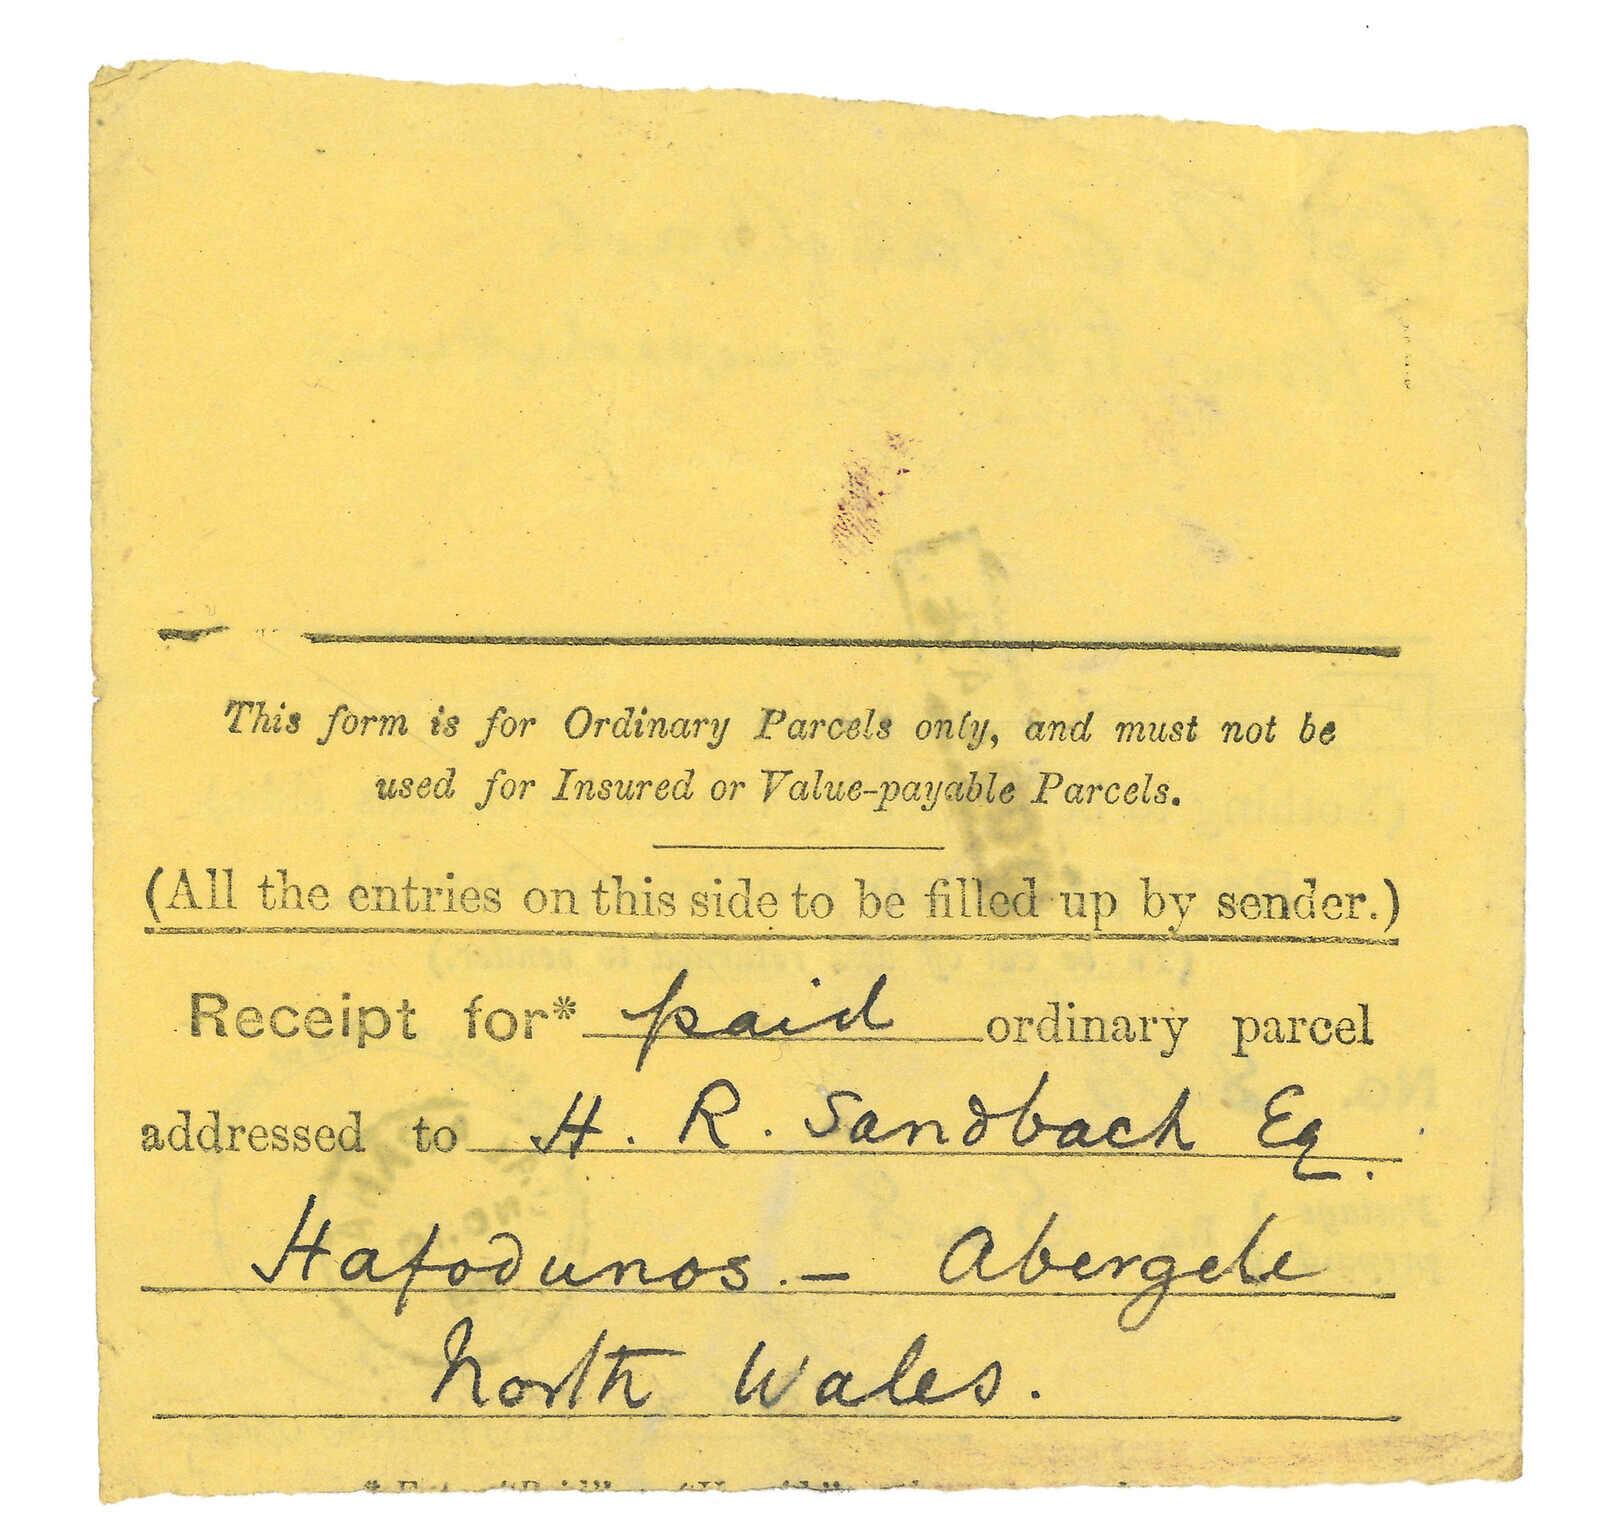 This form is for Ordinary Parcels only, and must not be
used for Insured or Value-payable Parcels.
(All the entries on this side to be filled up by sender.)
Receipt for* paid ordinary parcel
addressed to H. R. Sandbach Eq.
Hafodunos. — Abergele
North Wales.